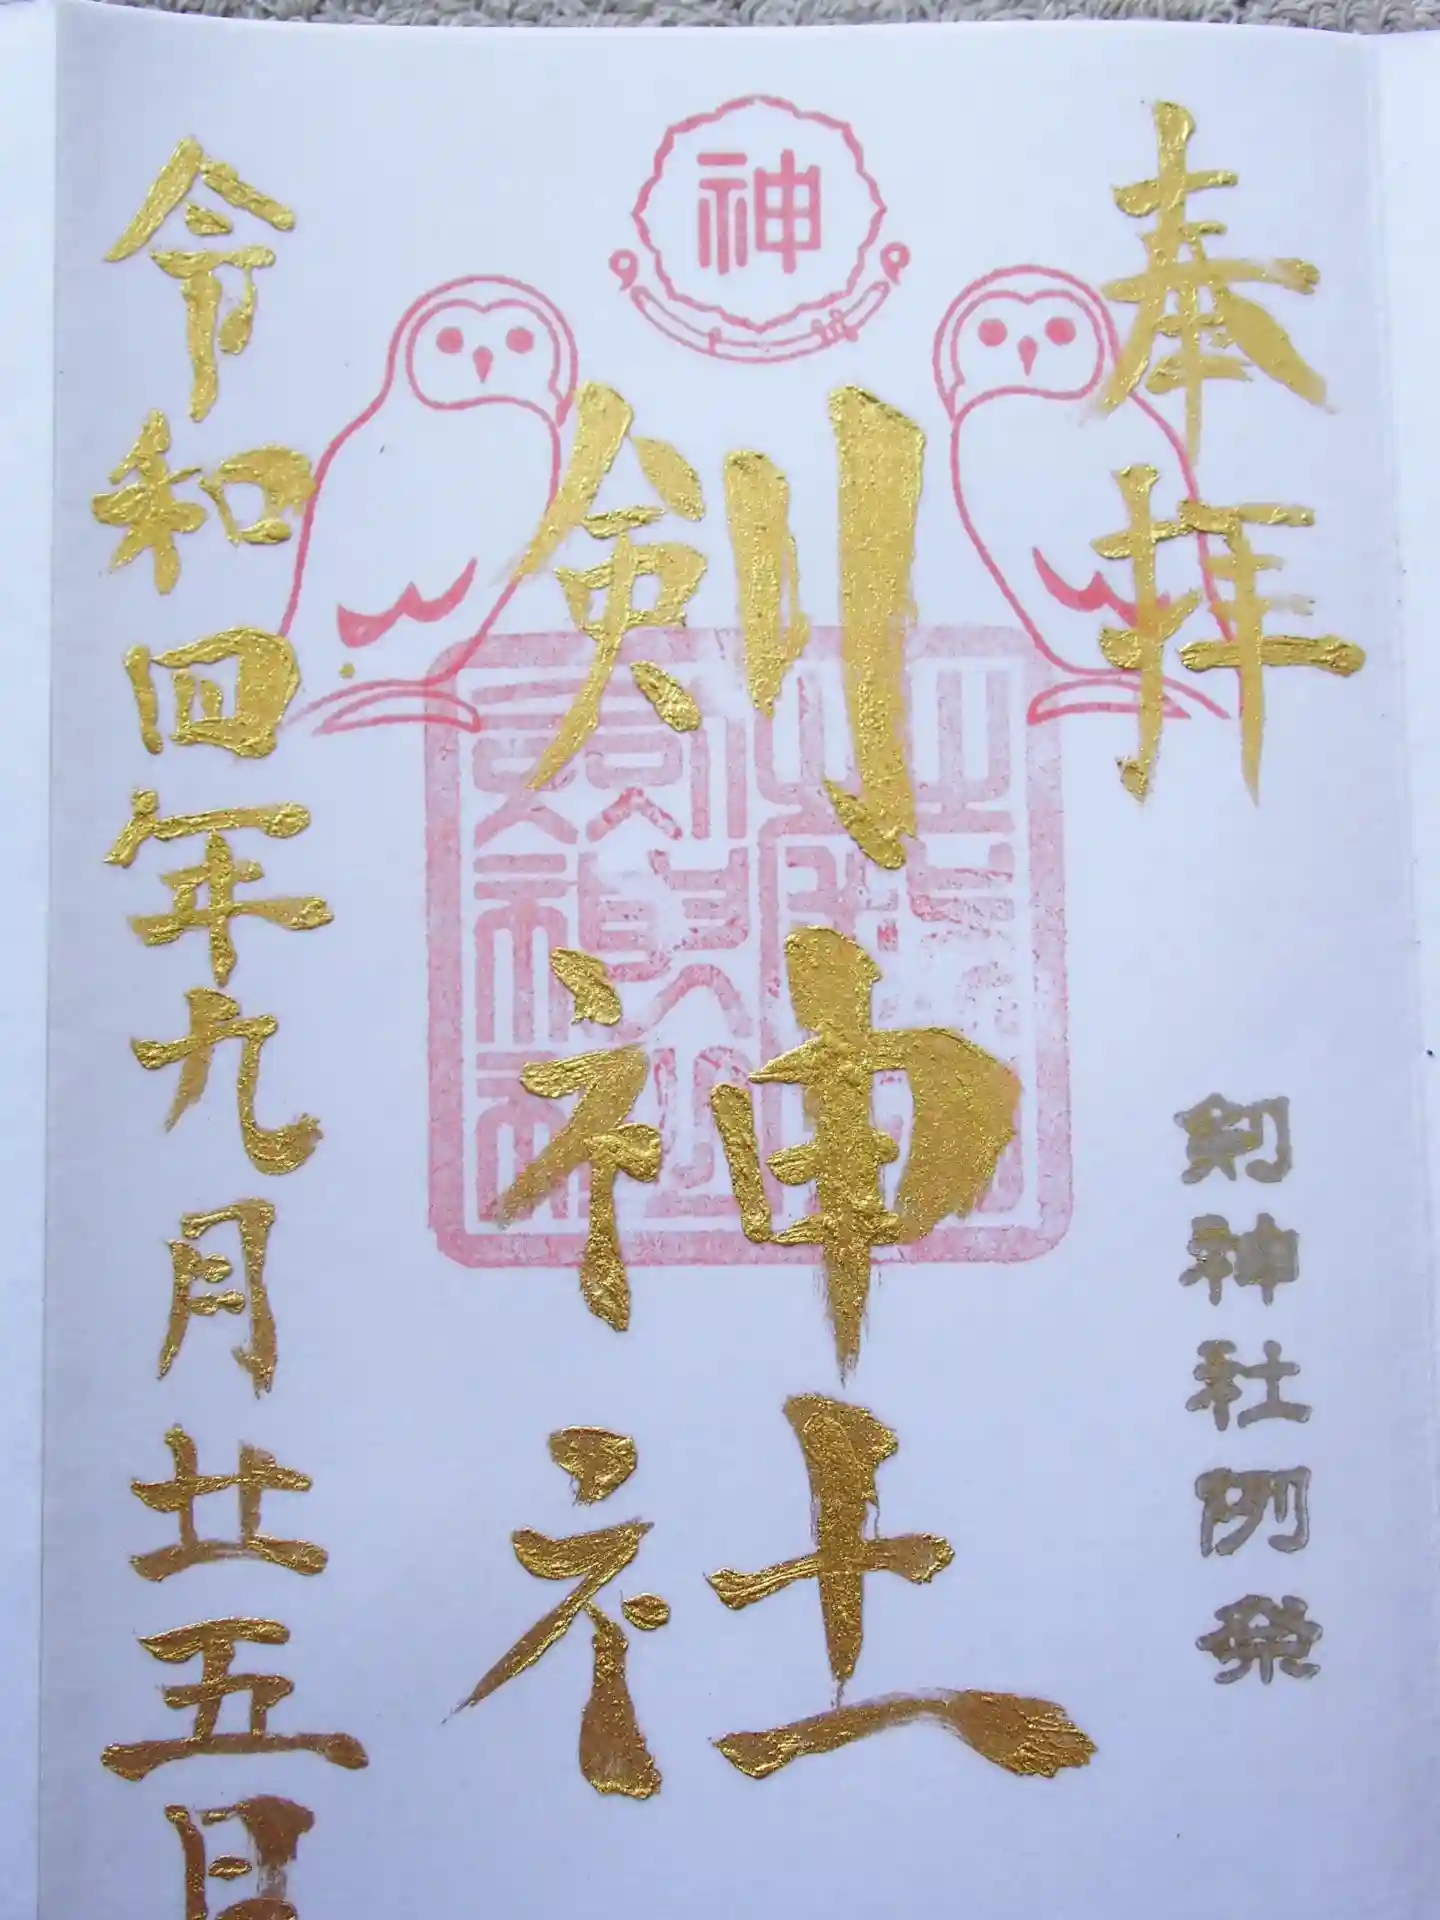 奉拝
剣神社例祭
神
剣神社
令和四年九月廿五日